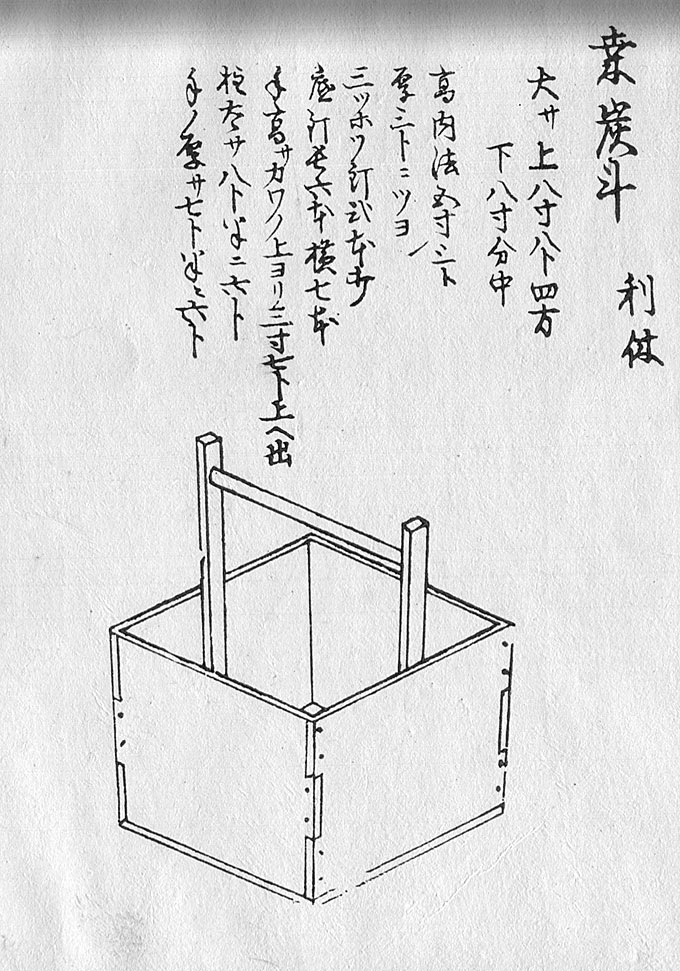 桒炭斗
利休
大サ上八寸八卜四方
下八寸分中
高内法五寸三卜
厚三卜ニツヨ
三ツホツ釘弐本ヅヽ
底釘長六本横七本
手高サカワノ上ヨリ三寸七卜上ヘ出
柱太サ八卜半ニ六卜
手ノ厚サ七卜半ニ六卜